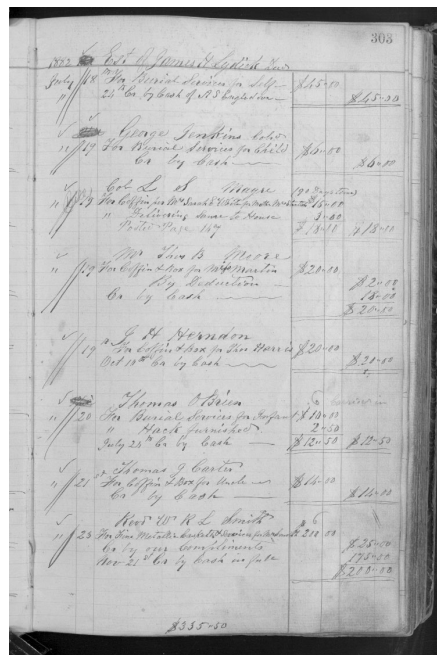 303
1882 Est of James H Lydick Dec
July 18 For Burial Services for Self $45-00
24th Cr by Cash of A S Engledow $45-00
George Jenkins Cold
" 19 For Burial Services for Child $6-00
Cr by Cash $6-00
Col L S Magre
" 19 For Coffin for Mrs $15-00
" Delivering same to House 3-00
Posted Page 147 $18-00 $18-00
Mr Thos B Moore
" 19 For Coffin & box for Mrs Martin $20-00
By Deduction $2-00
Cr by Cash 18-00
$20-00
J H Herndon
" 19 For Coffin & box for Harris $20-00
Oct 10th Cr by Cash $20-00
Thomas OBrien
" 20 For Burial Services for Infant $10-00
" Hack furnished 2-50
July 24th Cr by Cash $12-50 $12-50
Thomas J Carter
" 21 For Coffin & box for Uncle $14-00
Cr by Cash $14-00
Revd W R L Smith
" 23 For Fine Metallic Casket & Services for 200 00
Cr by our Compliments $25-00
Nov 21st Cr by Cash in full 175-00
$200-00
$335-50